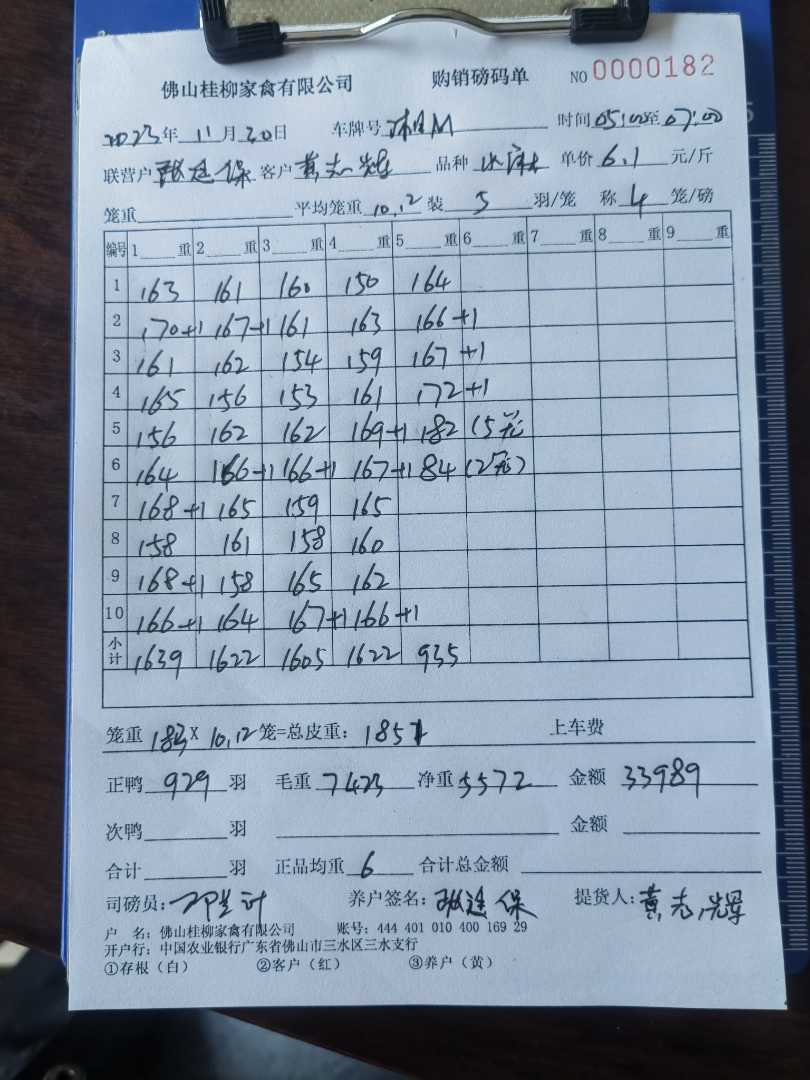 佛山桂柳家禽有限公司 购销磅码单 NO 0000182
2023年 11月30日 车牌号 时间 05:00至07:00
联营户 保 客户 黄志辉 品种 单价 6.1 元/斤
笼重 平均笼重 10.12 装 5 羽/笼 称 4 笼/磅
编号 1 重 2 重 3 重 4 重 5 重 6 重 7 重 8 重 9 重
1 163 161 160 150 164
2 170+1 167+1 161 163 166+1
3 161 162 154 159 167+1
4 165 156 153 161 172+1
5 156 162 162 169+1 182 (5元
6 164 166+1 166+1 167+1 84 (2元)
7 168+1 165 159 165
8 158 161 158 160
9 168+1 158 165 162
10 166+1 164 167+1 166+1
小计 1639 1622 1605 1622 935
笼重 183 × 10.12 笼=总皮重: 1851 上车费
正鸭 929 羽 毛重 7423 净重 5572 金额 33989
次鸭 羽 金额
合计 羽 正品均重 6 合计总金额
司磅员: 养户签名: 保 提货人: 黄志辉
户 名: 佛山桂柳家禽有限公司 账号: 444 401 010 400 169 29
开户行: 中国农业银行广东省佛山市三水区三水支行
①存根(白) ②客户(红) ③养户(黄)